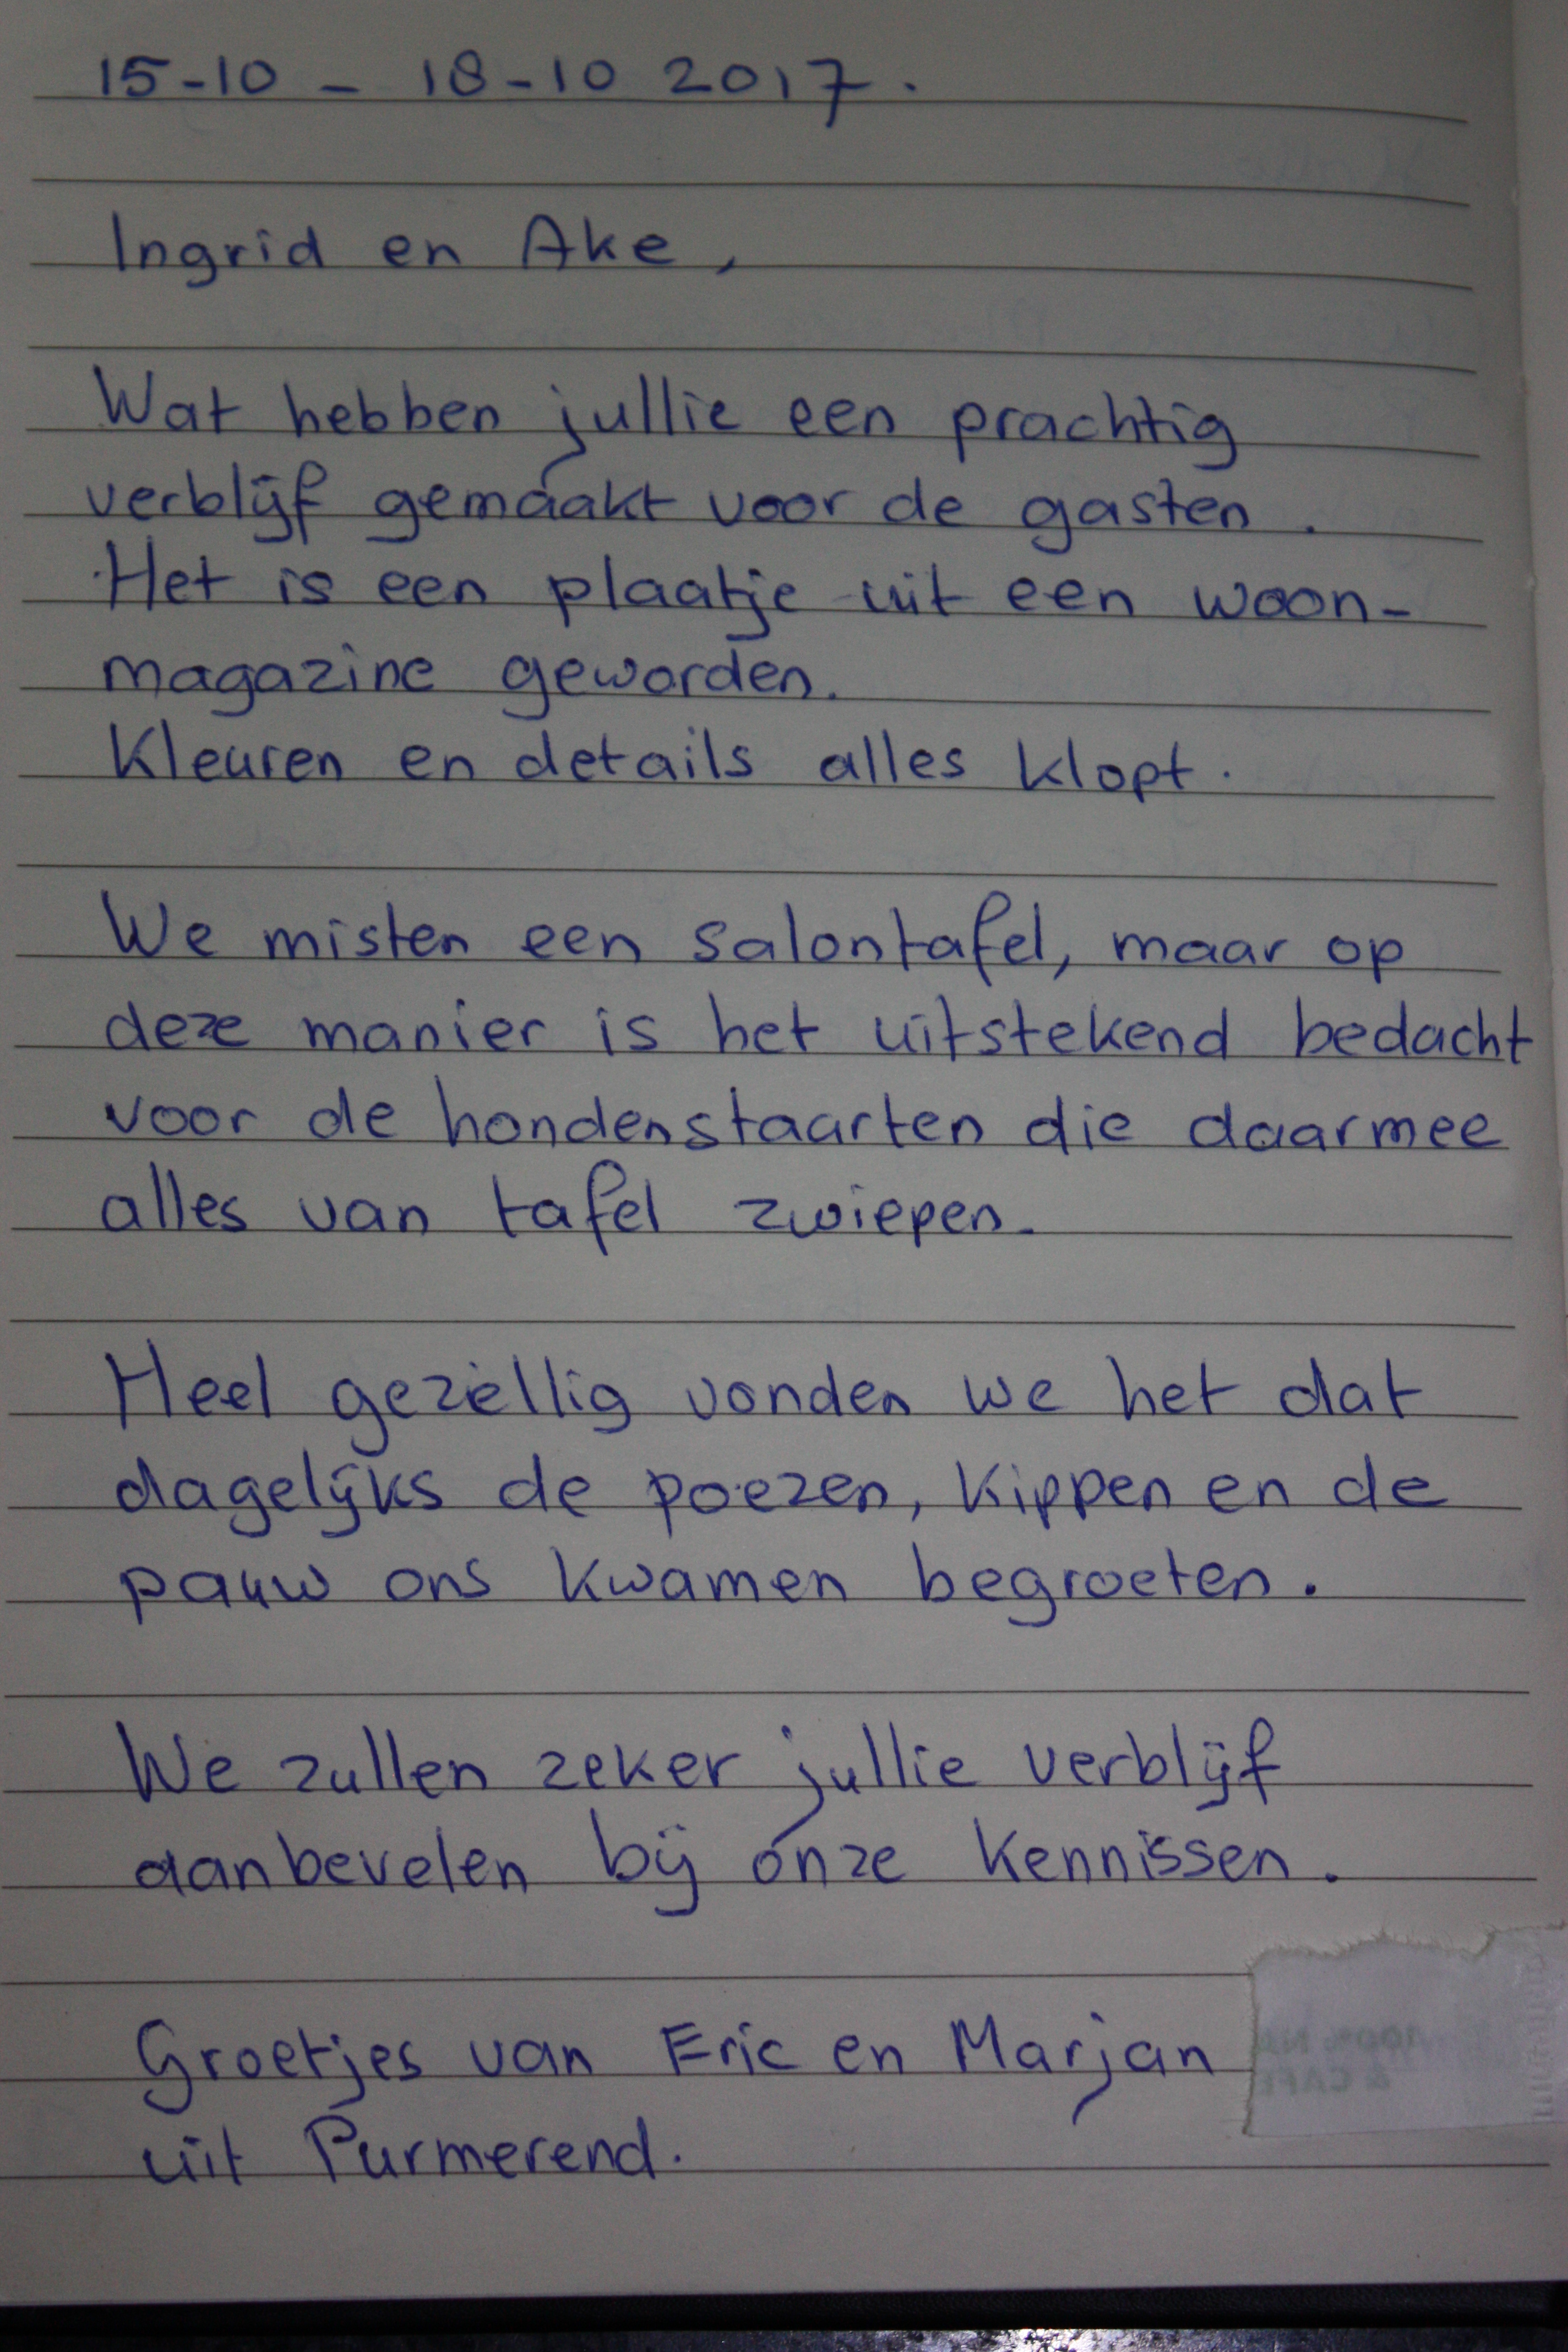 15-10 - 18-10 2017.
Ingrid en Ake,
Wat hebben jullie een prachtig
verblijf gemaakt voor de gasten.
Het is een plaatje uit een woon-
magazine geworden.
Kleuren en details alles klopt.
We misten een salontafel, maar op
deze manier is het uitstekend bedacht
voor de hondenstaarten die daarmee
alles van tafel zwiepen.
Heel gezellig vonden we het dat
dagelijks de poezen, kippen en de
pauw ons kwamen begroeten.
We zullen zeker jullie verblijf
aanbevelen bij onze kennissen.
Groetjes van Eric en Marjan
uit Purmerend.